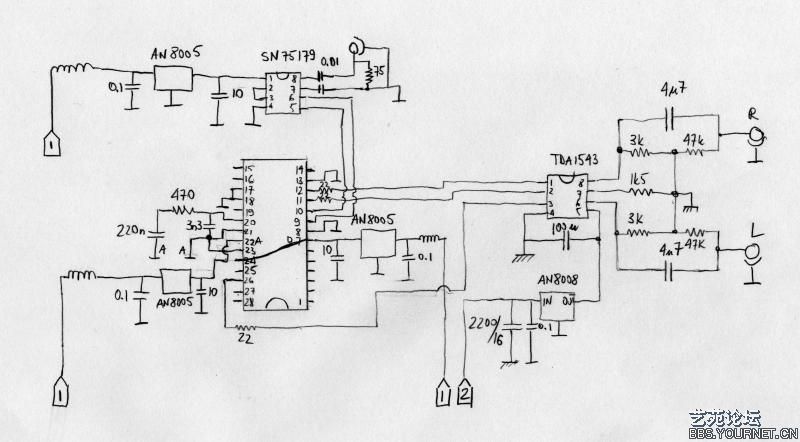 AN8005
SN75179
0.01
75
0.1
10
1
8
2
7
3
6
4
5
1
4µ7
R
3k
47k
TDA1543
1k5
3k
47K
L
4µ7
15
14
16
13
17
12
22
18
11
22
470
19
10
20
9
3n3
21
8
220n
A
A
22
A
23
24
25
26
27
28
1
AN8005
10
0.1
1
8
2
7
3
6
4
5
100u
AN8008
IN
OU
2200/
16
0.1
0.1
AN8005
10
22
1
1
2
艺苑论坛
BBS.YOURNET.CN